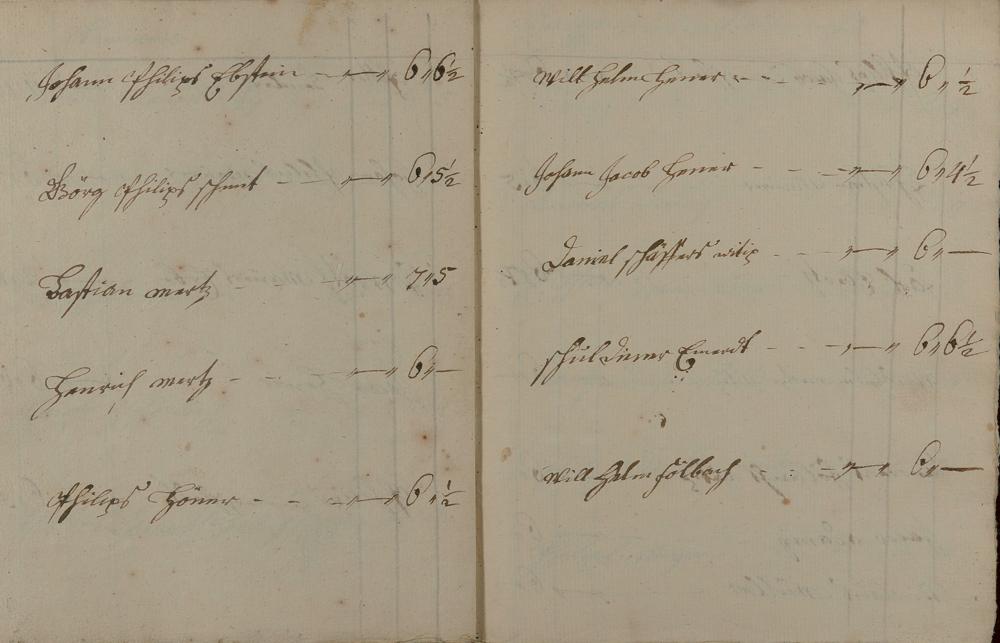 Johann Philips Ebstein - - " — " 6 " 6½
Görg Philips schmit - - " — " 6 " 5½
Bastian mertz - - " — " 7 " 5
Henrich mertz - - " — " 6 " —
Philips Höner - - " — " 6 " ½
Willhelm Hener - - " — " 6 " ½
Johann Jacob Hener - - " — " 6 " 4½
Daniel schäffers witib - - " — " 6 " —
schuldiener Emerdt - - " — " 6 " 6½
Willhelm fölbach - " — " 6 " —